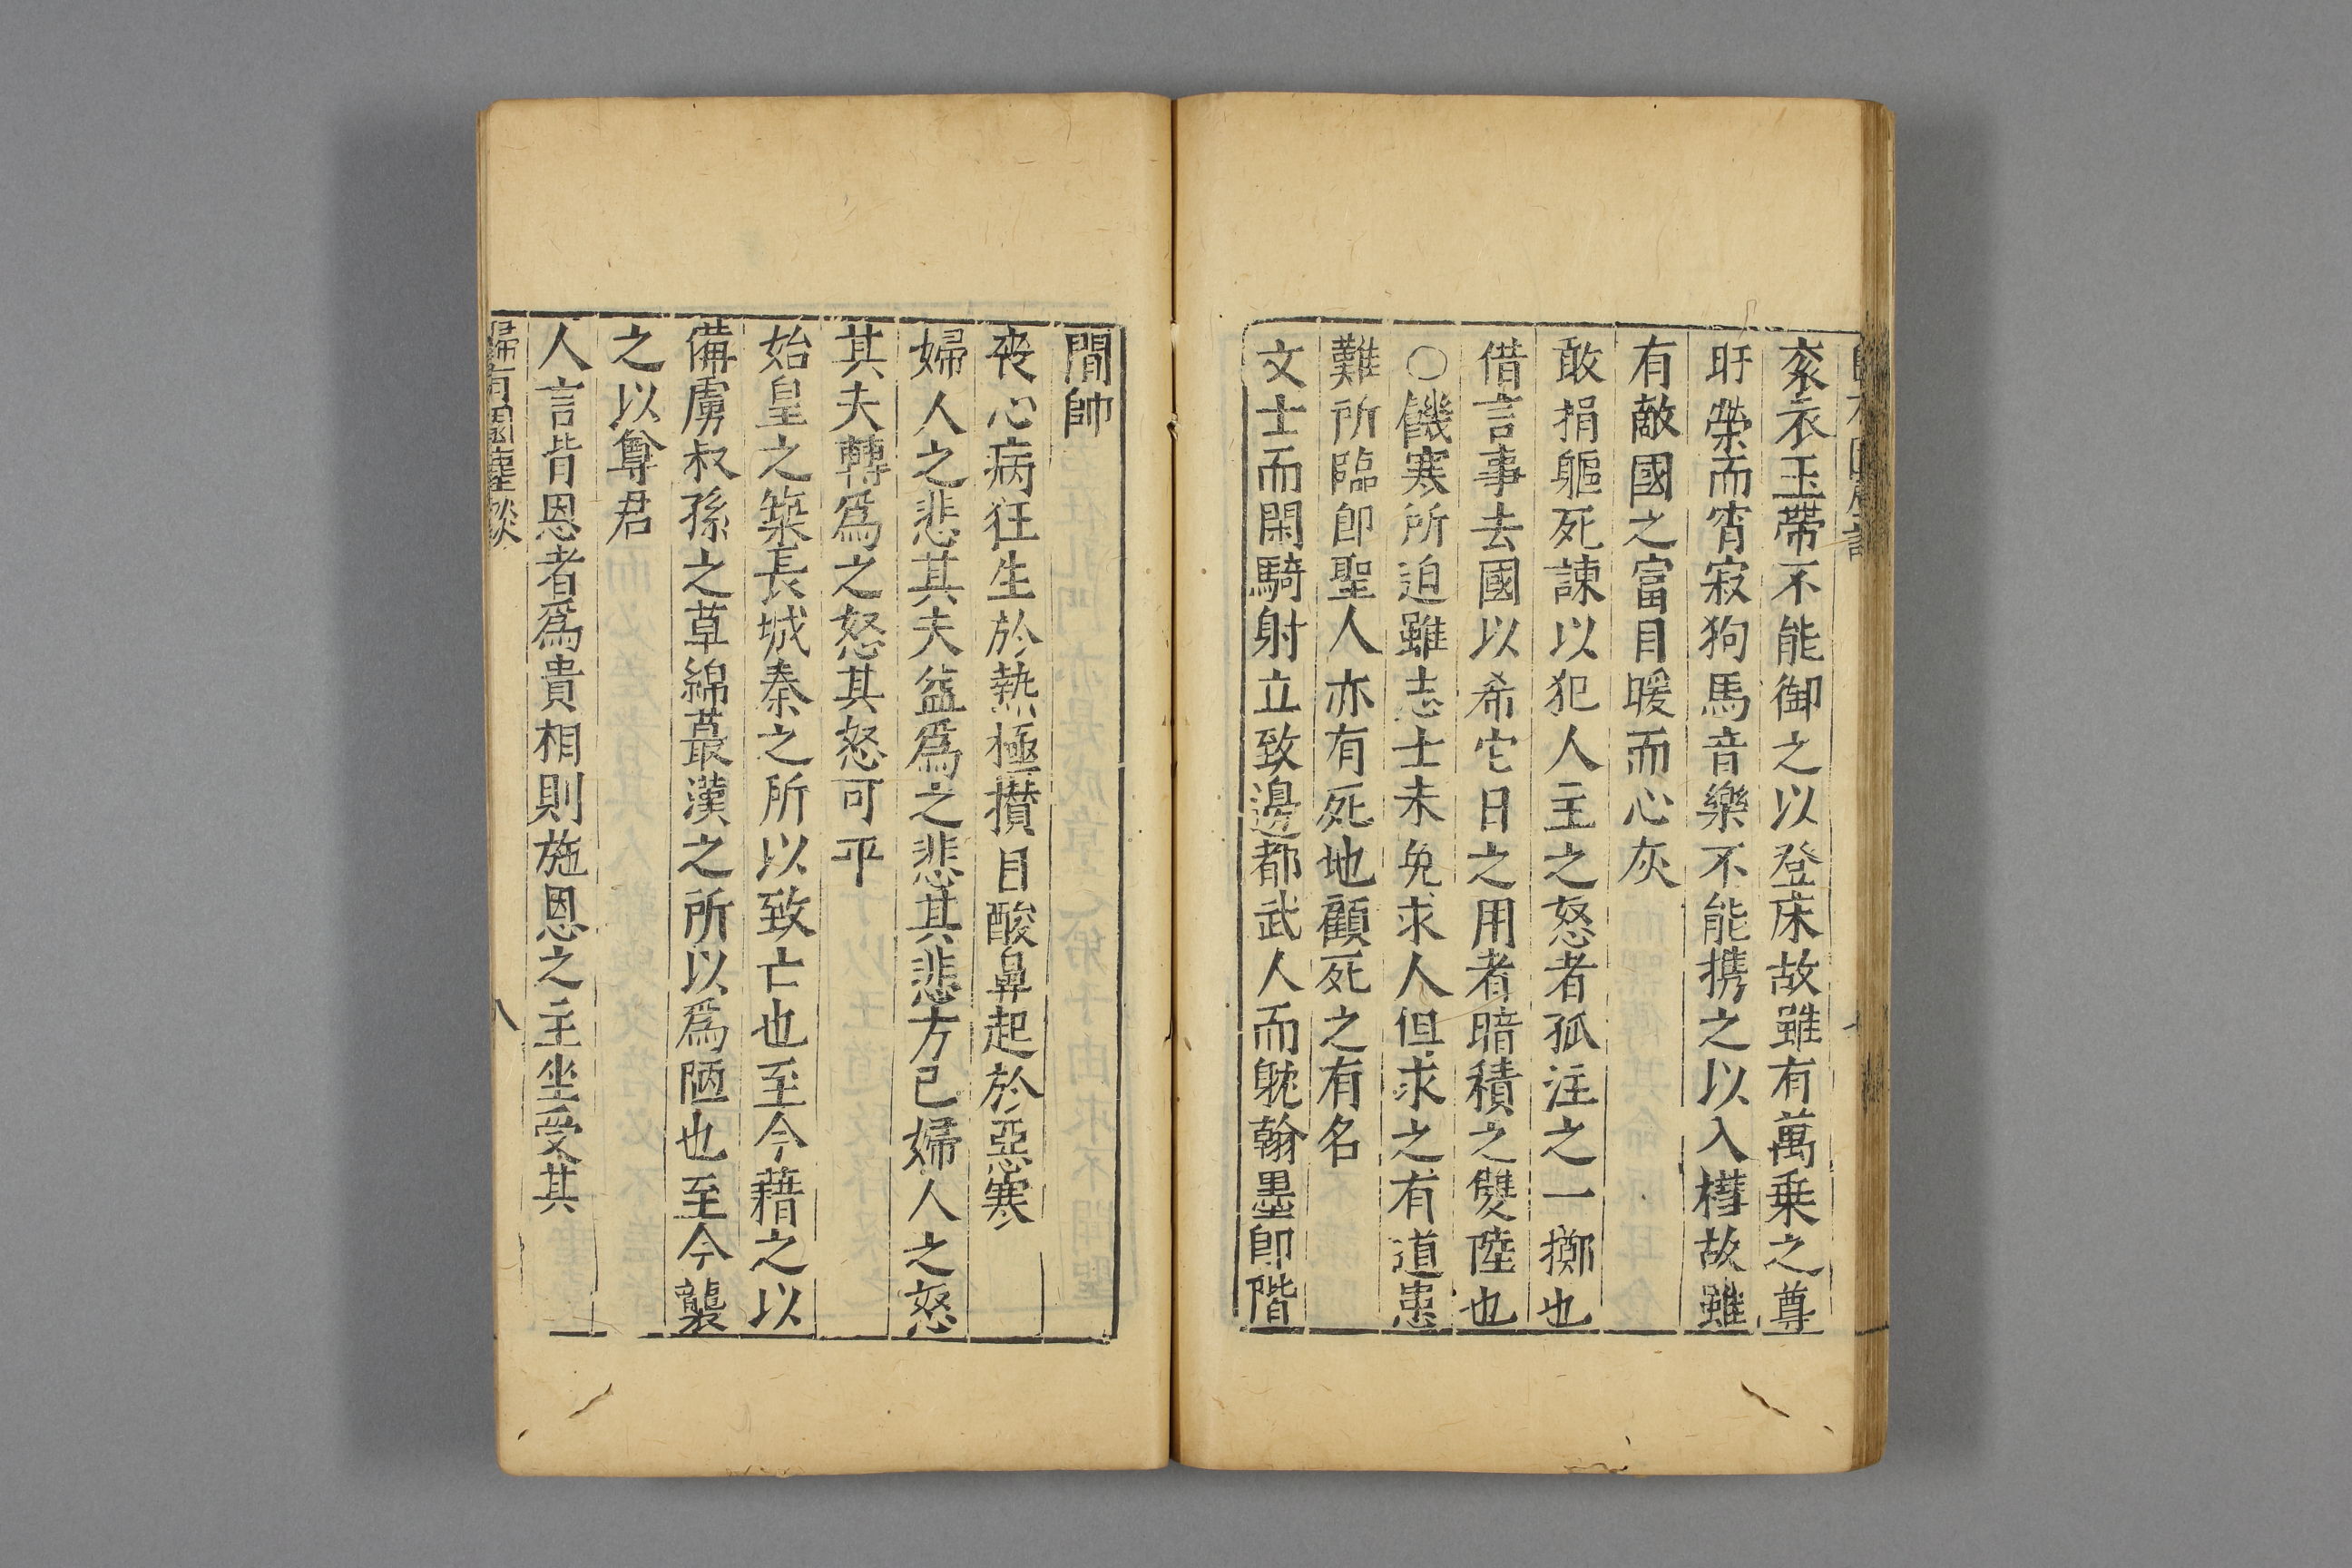 衮衣玉帶不能御之以登床故雖有萬乗之尊
旰榮而宵寂狗馬音樂不能携之以入槥故雖
有敵國之富目暖而心灰
敢捐軀死諫以犯人主之怒者孤注之一擲也
借言事去國以希它日之用者暗積之雙陸也
○饑寒所迫雖志士未免求人但求之有道患
難所臨卽聖人亦有死地顧死之有名
文士而閑騎射立致邊都武人而躭翰墨卽階
閫帥
丧心病狂生於熱極攅目酸鼻起於惡寒
婦人之悲其夫益爲之悲其悲方已婦人之怒
其夫轉爲之怒其怒可平
始皇之築長城秦之所以致亡也至今藉之以
備虜叔孫之草綿蕞漢之所以爲陋也至今襲
之以尊君
人言背恩者爲貴相則施恩之主坐受其
歸有園麈談
八